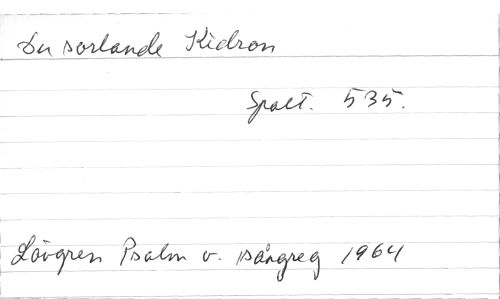 Du sorlande Kidron
Spalt. 535.
Lövgren Psalm o. sångreg 1964